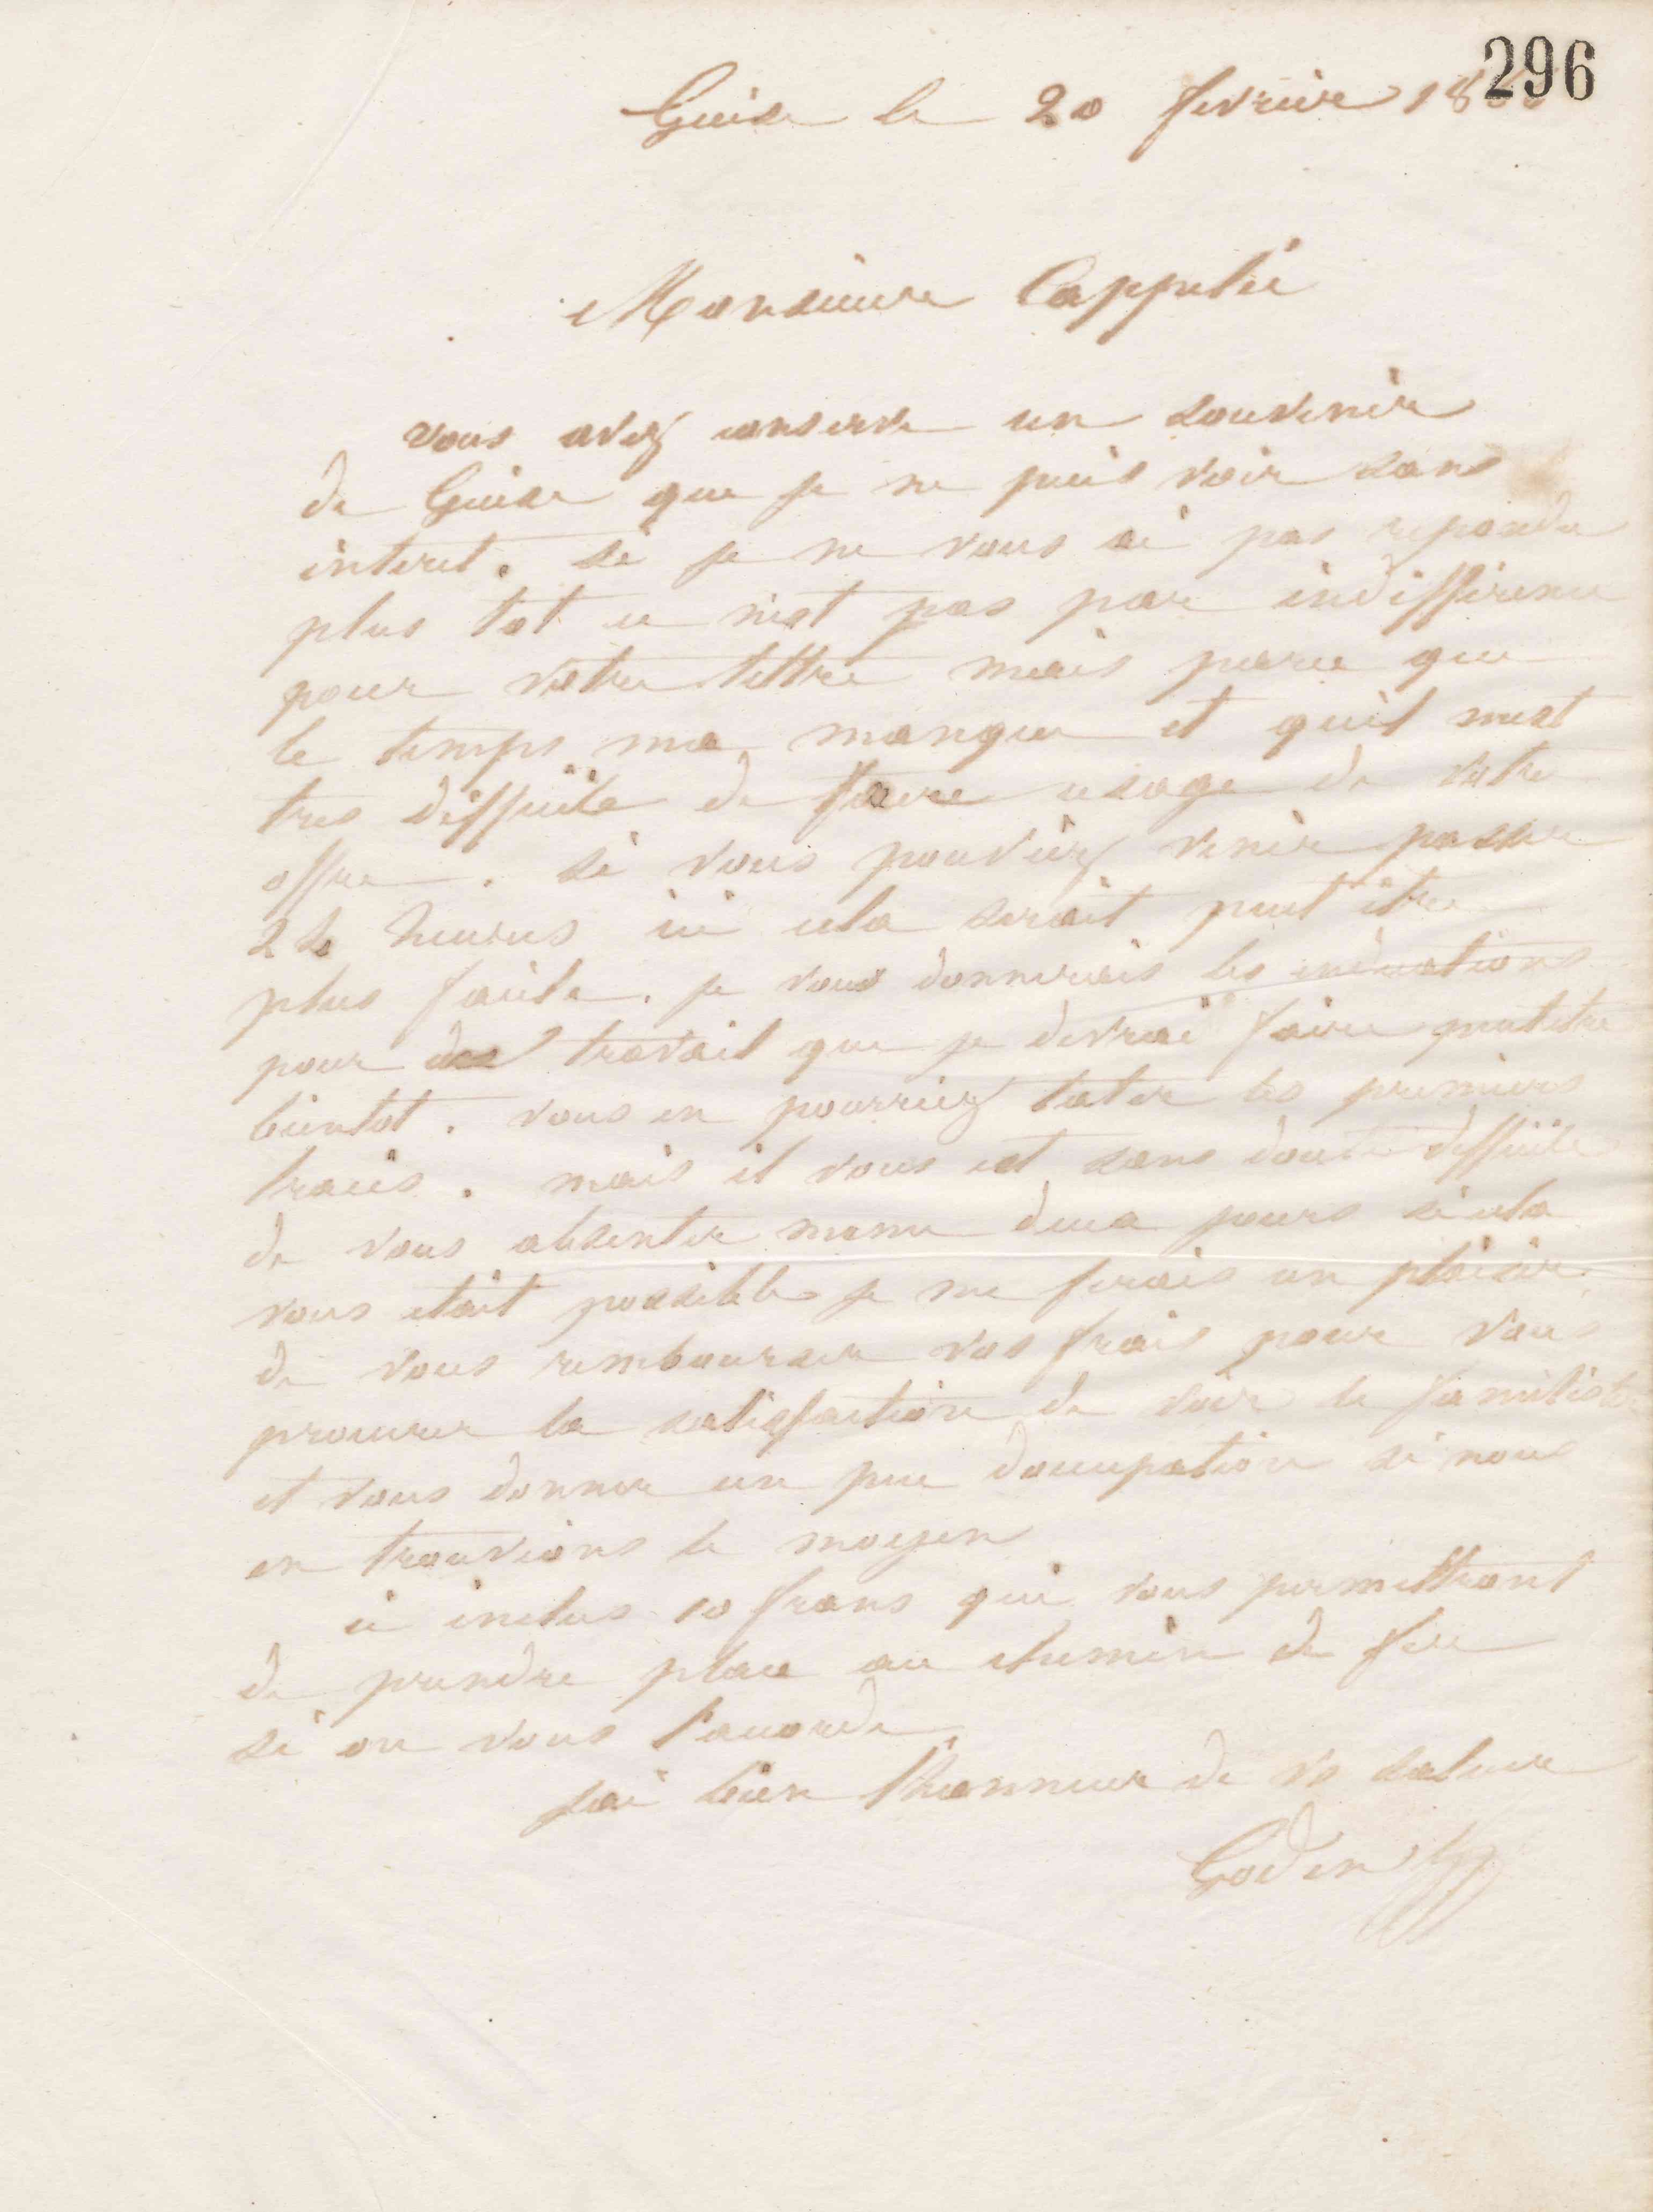 296
Guise le 20 fevrier 18
Monsieur Cappelié
vous avez conserve un souvenir
de Guise que je ne puis voir sans
interet. si je ne vous ai pas repondu
plus tot ce nest pas par indifference
pour votre lettre mais parce que
le temps ma manque et quil mest
tres difficile de faire usage de votre
offre. si vous pouviez venir passer
24 heures ici cela serait peut être
plus facile. je vous donnerais les indications
pour travail que je devrai faire peutetre
bientot. vous en pourriez tater les premiers
traits. mais il vous est sans doute difficile
de vous absenter meme deux jours si cela
vous etait possible je me ferais un plaisir
de vous rembourser vos frais pour vous
procurer la satisfaction de voir le familistere
et vous donner un peu doccupation si nous
en trouvions le moyen
ci inclus 10 frans qui vous permettront
de prendre place au chemin de fer
si on vous l'accorde.
jai bien lhonneur de vs saluer
Godin